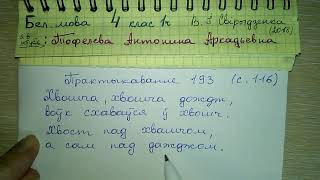 Бел. мова 4 клас 1ч В. І. Свірыдзенка
(2018)
: Тюфелева Антонина Аркадьевна
Практыкаванне 193 (с. 116)
Хвошча, хвошча дождж,
воўк схаваўся ў хвошч.
Хвост пад хвашчом,
а сам пад дажджом.